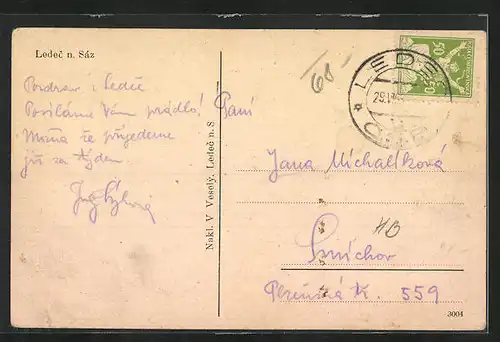 Ledeč n. Sáz
Pozdrav z Ledče
Posíláme Vám prádlo!
Možná že přijedeme
již za týden
Nakl. V Veselý, Ledeč n. S
68-
LEDE
29.
50
Paní
Jana Michalíková
HB
Smíchov
Plzeňská K. 559
3004